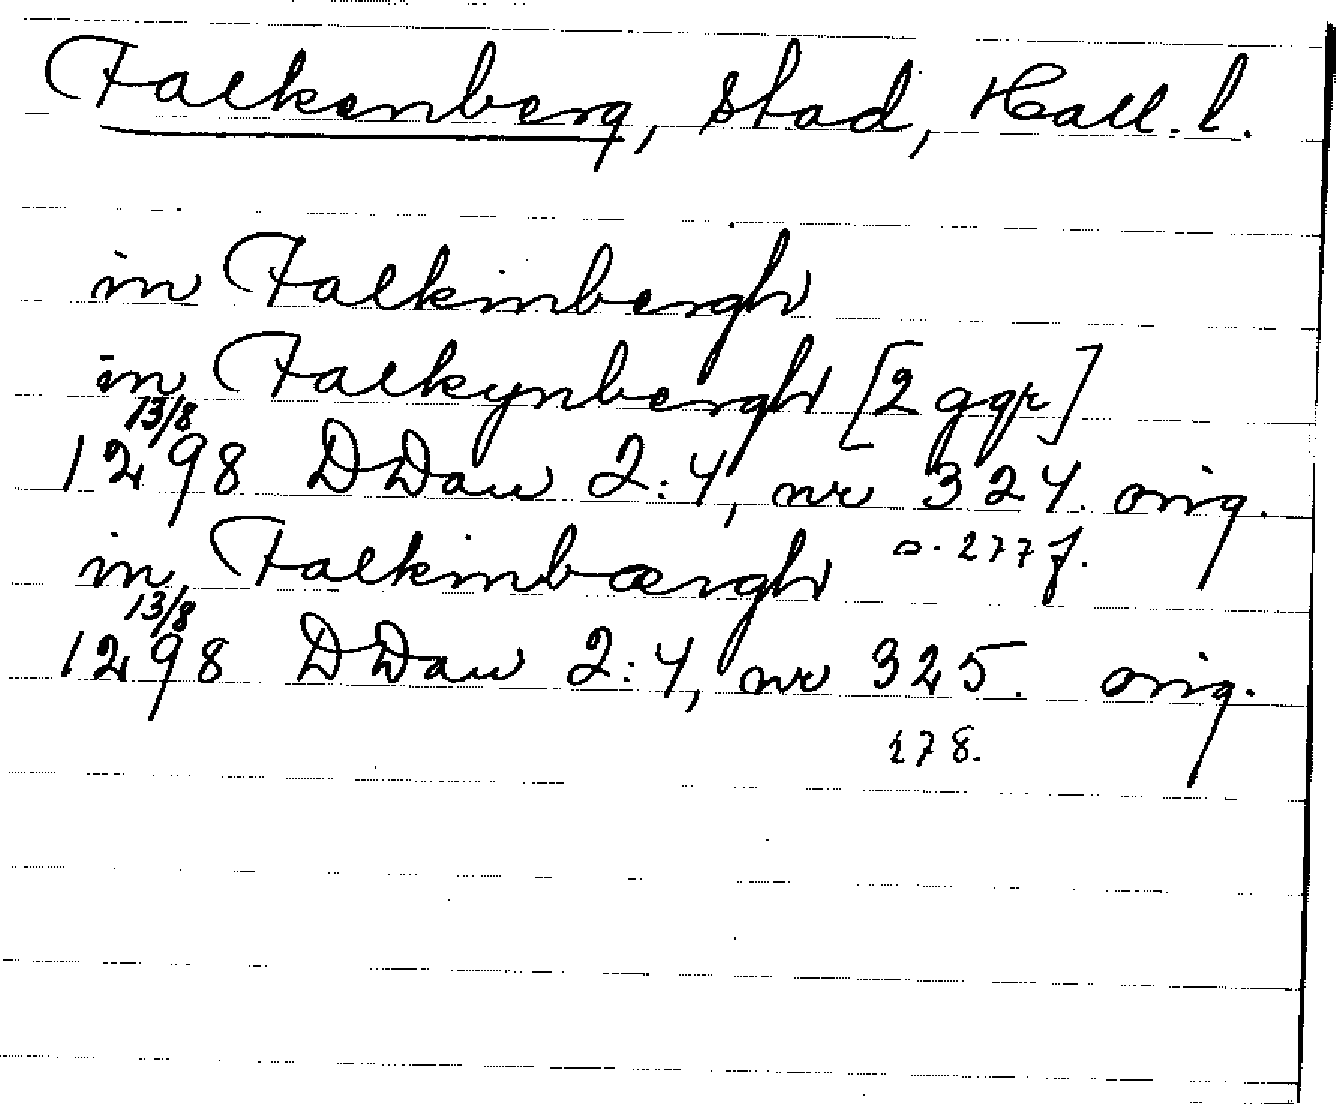 Falkenberg, stad, Hall. l.
in Falkinbergh
in Falkynbergh [2 ggr]
13/8
1298 DDan 2:4, nr 324. orig.
s. 277 f.
in Falkinbærgh
13/8
1298 DDan 2:4, nr 325. orig.
278.